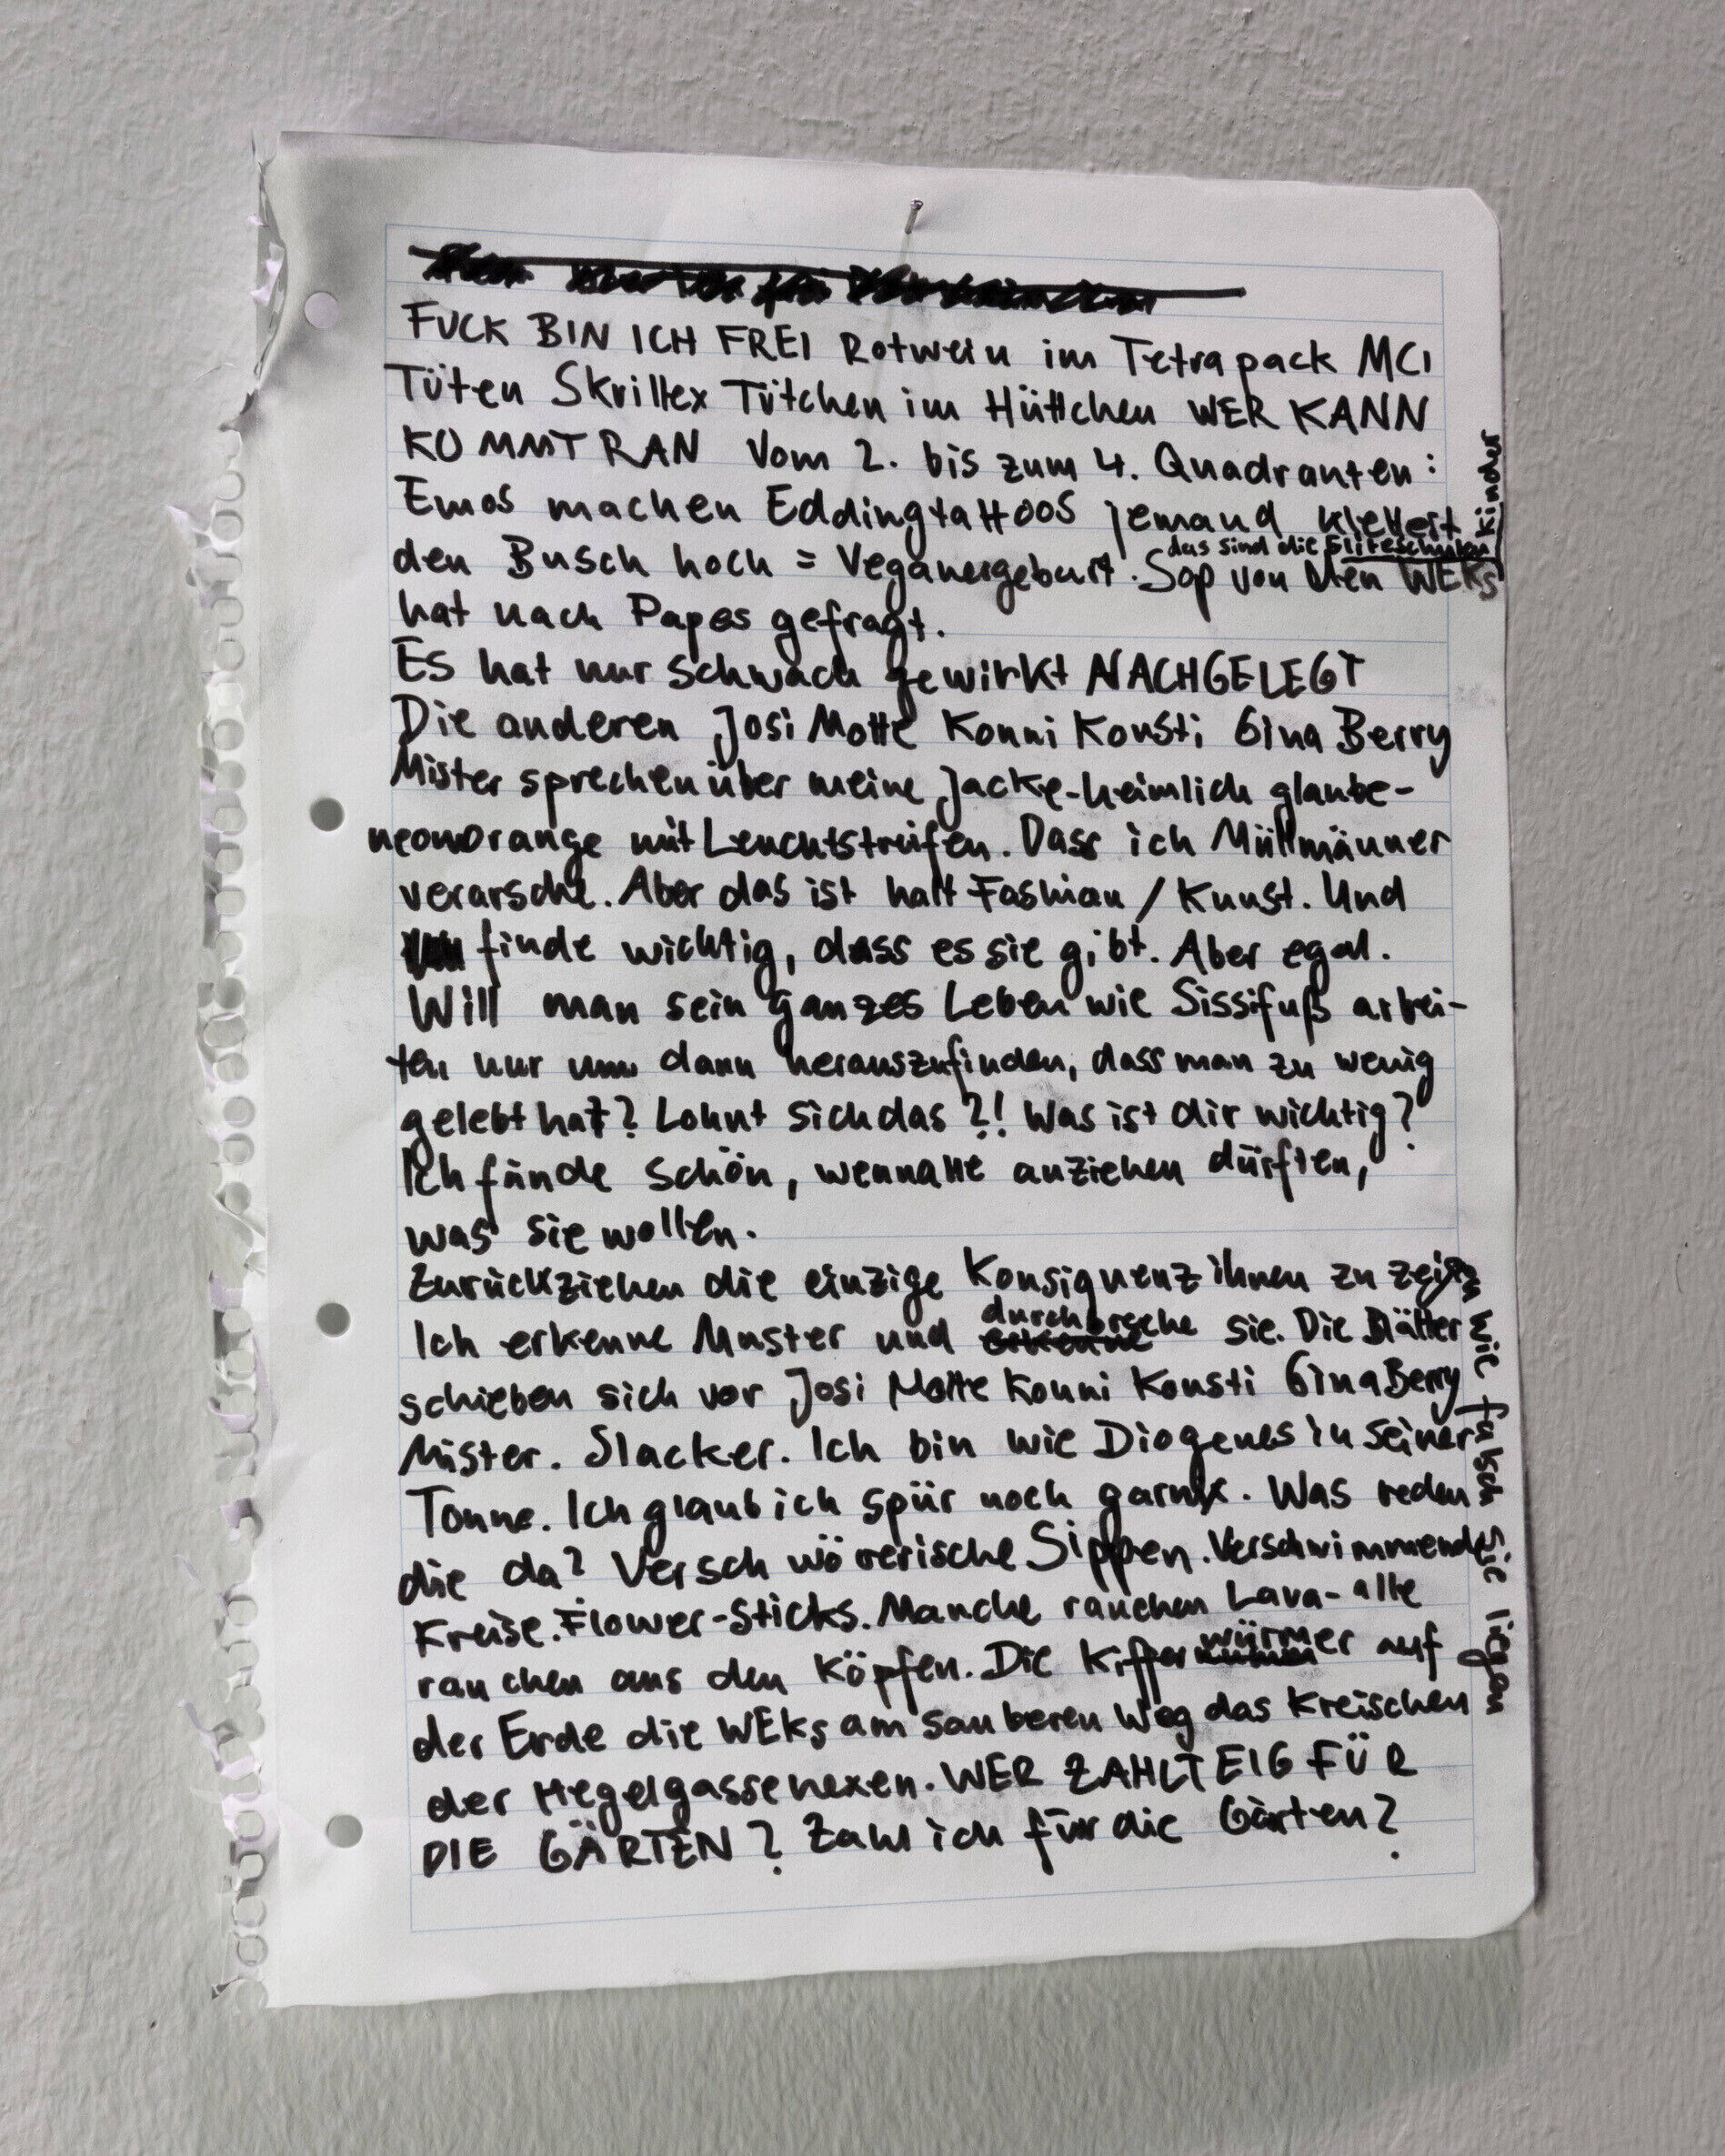 FUCK BIN ICH FREI Rotwein im Tetrapack MCI
Tüten Skrillex Tütchen im Hüttchen WER KANN
KOMMT RAN Vom 2. bis zum 4. Quadranten:
Emos machen Eddingtattoos jemand klettert
das sind die Eliteschulen kinder
den Busch hoch = Veganergeburt. Sop von den WEKs
hat nach Papes gefragt.
Es hat nur schwach gewirkt NACHGELEGT
Die anderen Josi Motte Konni Konsti Gina Berry
Mister sprechen über meine Jacke-heimlich glaube-
neonorange mit Leuchtstreifen. Dass ich Müllmänner
verarsche. Aber das ist halt Fashion / Kunst. Und
finde wichtig, dass es sie gibt. Aber egal.
Will man sein ganzes Leben wie Sissifuß arbei-
ten nur um dann herauszufinden, dass man zu wenig
gelebt hat? Lohnt sich das?! Was ist dir wichtig?
Ich fände schön, wenn alle anziehen dürften,
was sie wollen.
Zurückziehen die einzige Konsiquenz ihnen zu zeigen wie falsch sie liegen
Ich erkenne Muster und durchbreche sie. Die Blätter
schieben sich vor Josi Motte Konni Konsti Gina Berry
Mister. Slacker. Ich bin wie Diogenes in seiner
Tonne. Ich glaub ich spür noch garnix. Was reden
die da? Verschwörerische Sippen. Verschwimmende
Kreise. Flower-Sticks. Manche rauchen Lava-alle
rauchen aus den Köpfen. Die Kifferwürmer auf
der Erde die WEKs am sauberen Weg das Kreischen
der Hegelgassehexen. WER ZAHLT EIG FÜR
DIE GÄRTEN? Zahl ich für die Gärten?